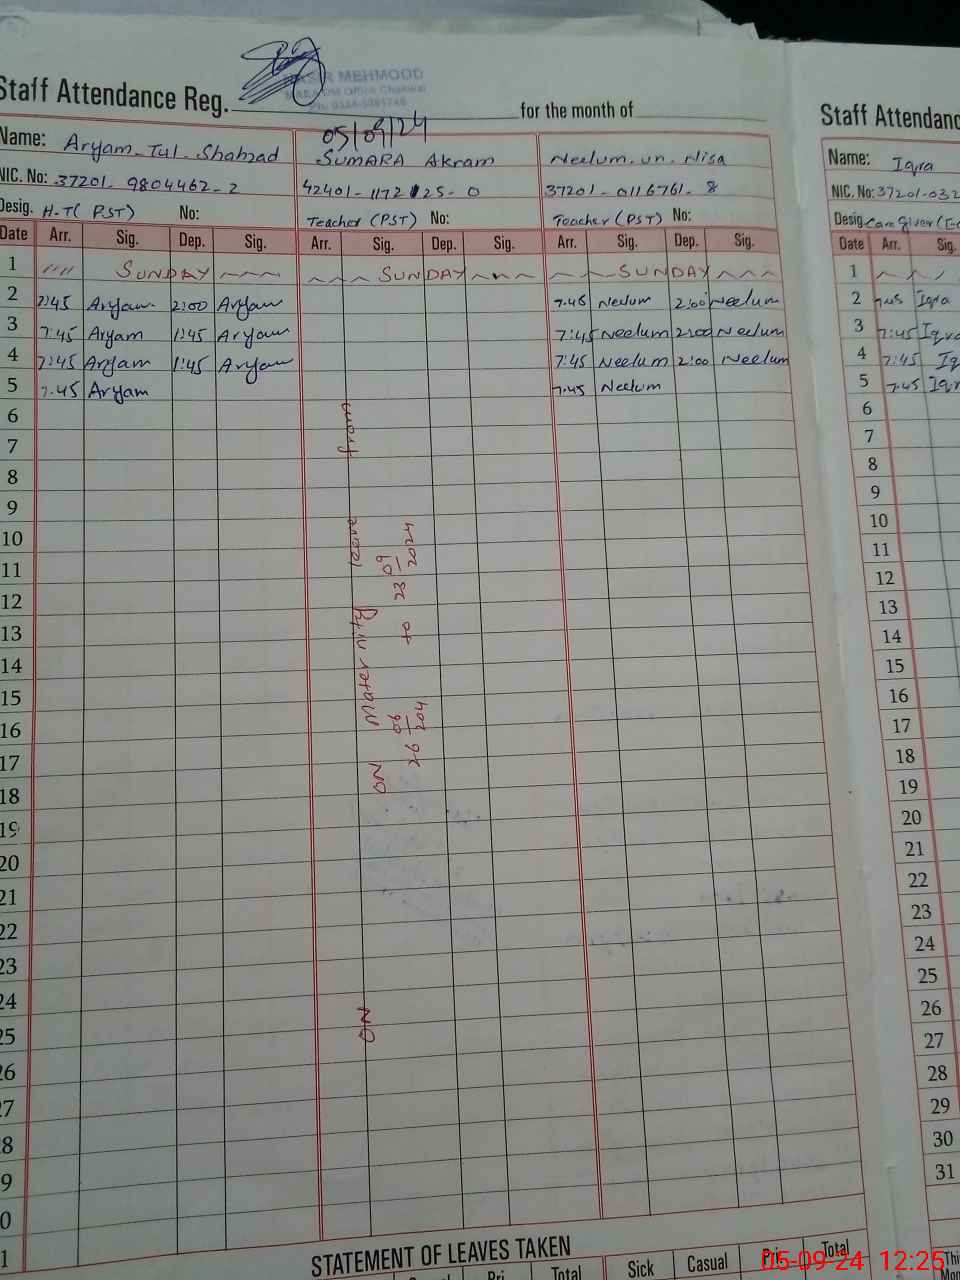 Staff Attendance Reg. for the month of
MEHMOOD
05/09/24
Name: Aryam-Tul-Shahzad SUMARA Akram Neelum-un-Nisa
NIC. No: 37201-9804462-2 42401-1172125-0 37201-0116761-8
Desig. H-T( PST) No: Teacher (PST) No: Teacher (PST) No:
Date Arr. Sig. Dep. Sig. Arr. Sig. Dep. Sig. Arr. Sig. Dep. Sig.
1 SUNDAY SUNDAY SUNDAY
2 7:45 Aryam 2:00 Aryam 7.45 Neelum 2:00 Neelum
3 7:45 Aryam 1:45 Aryam 7:45 Neelum 2:00 Neelum
4 7:45 Aryam 1:45 Aryam 7:45 Neelum 2:00 Neelum
5 7.45 Aryam 7.45 Neelum
6
7
8
9
10
11
12
13
14
15
16
17
18
19
20
21
22
23
24
25
26
27
28
29
30
31
ON ON Maternity leave from
26 06 204 to 23 09 2024
STATEMENT OF LEAVES TAKEN
Casual Pri Total Sick Casual Pri Total
Staff Attendanc
Name: Iqra
NIC. No: 37201-032
Desig
Date Arr. Sig.
1
2 7:45 Iqra
3 7:45 Iqra
4 7:45 Iq
5 7.45 Iqr
6
7
8
9
10
11
12
13
14
15
16
17
18
19
20
21
22
23
24
25
26
27
28
29
30
31
05-09-24 12:25